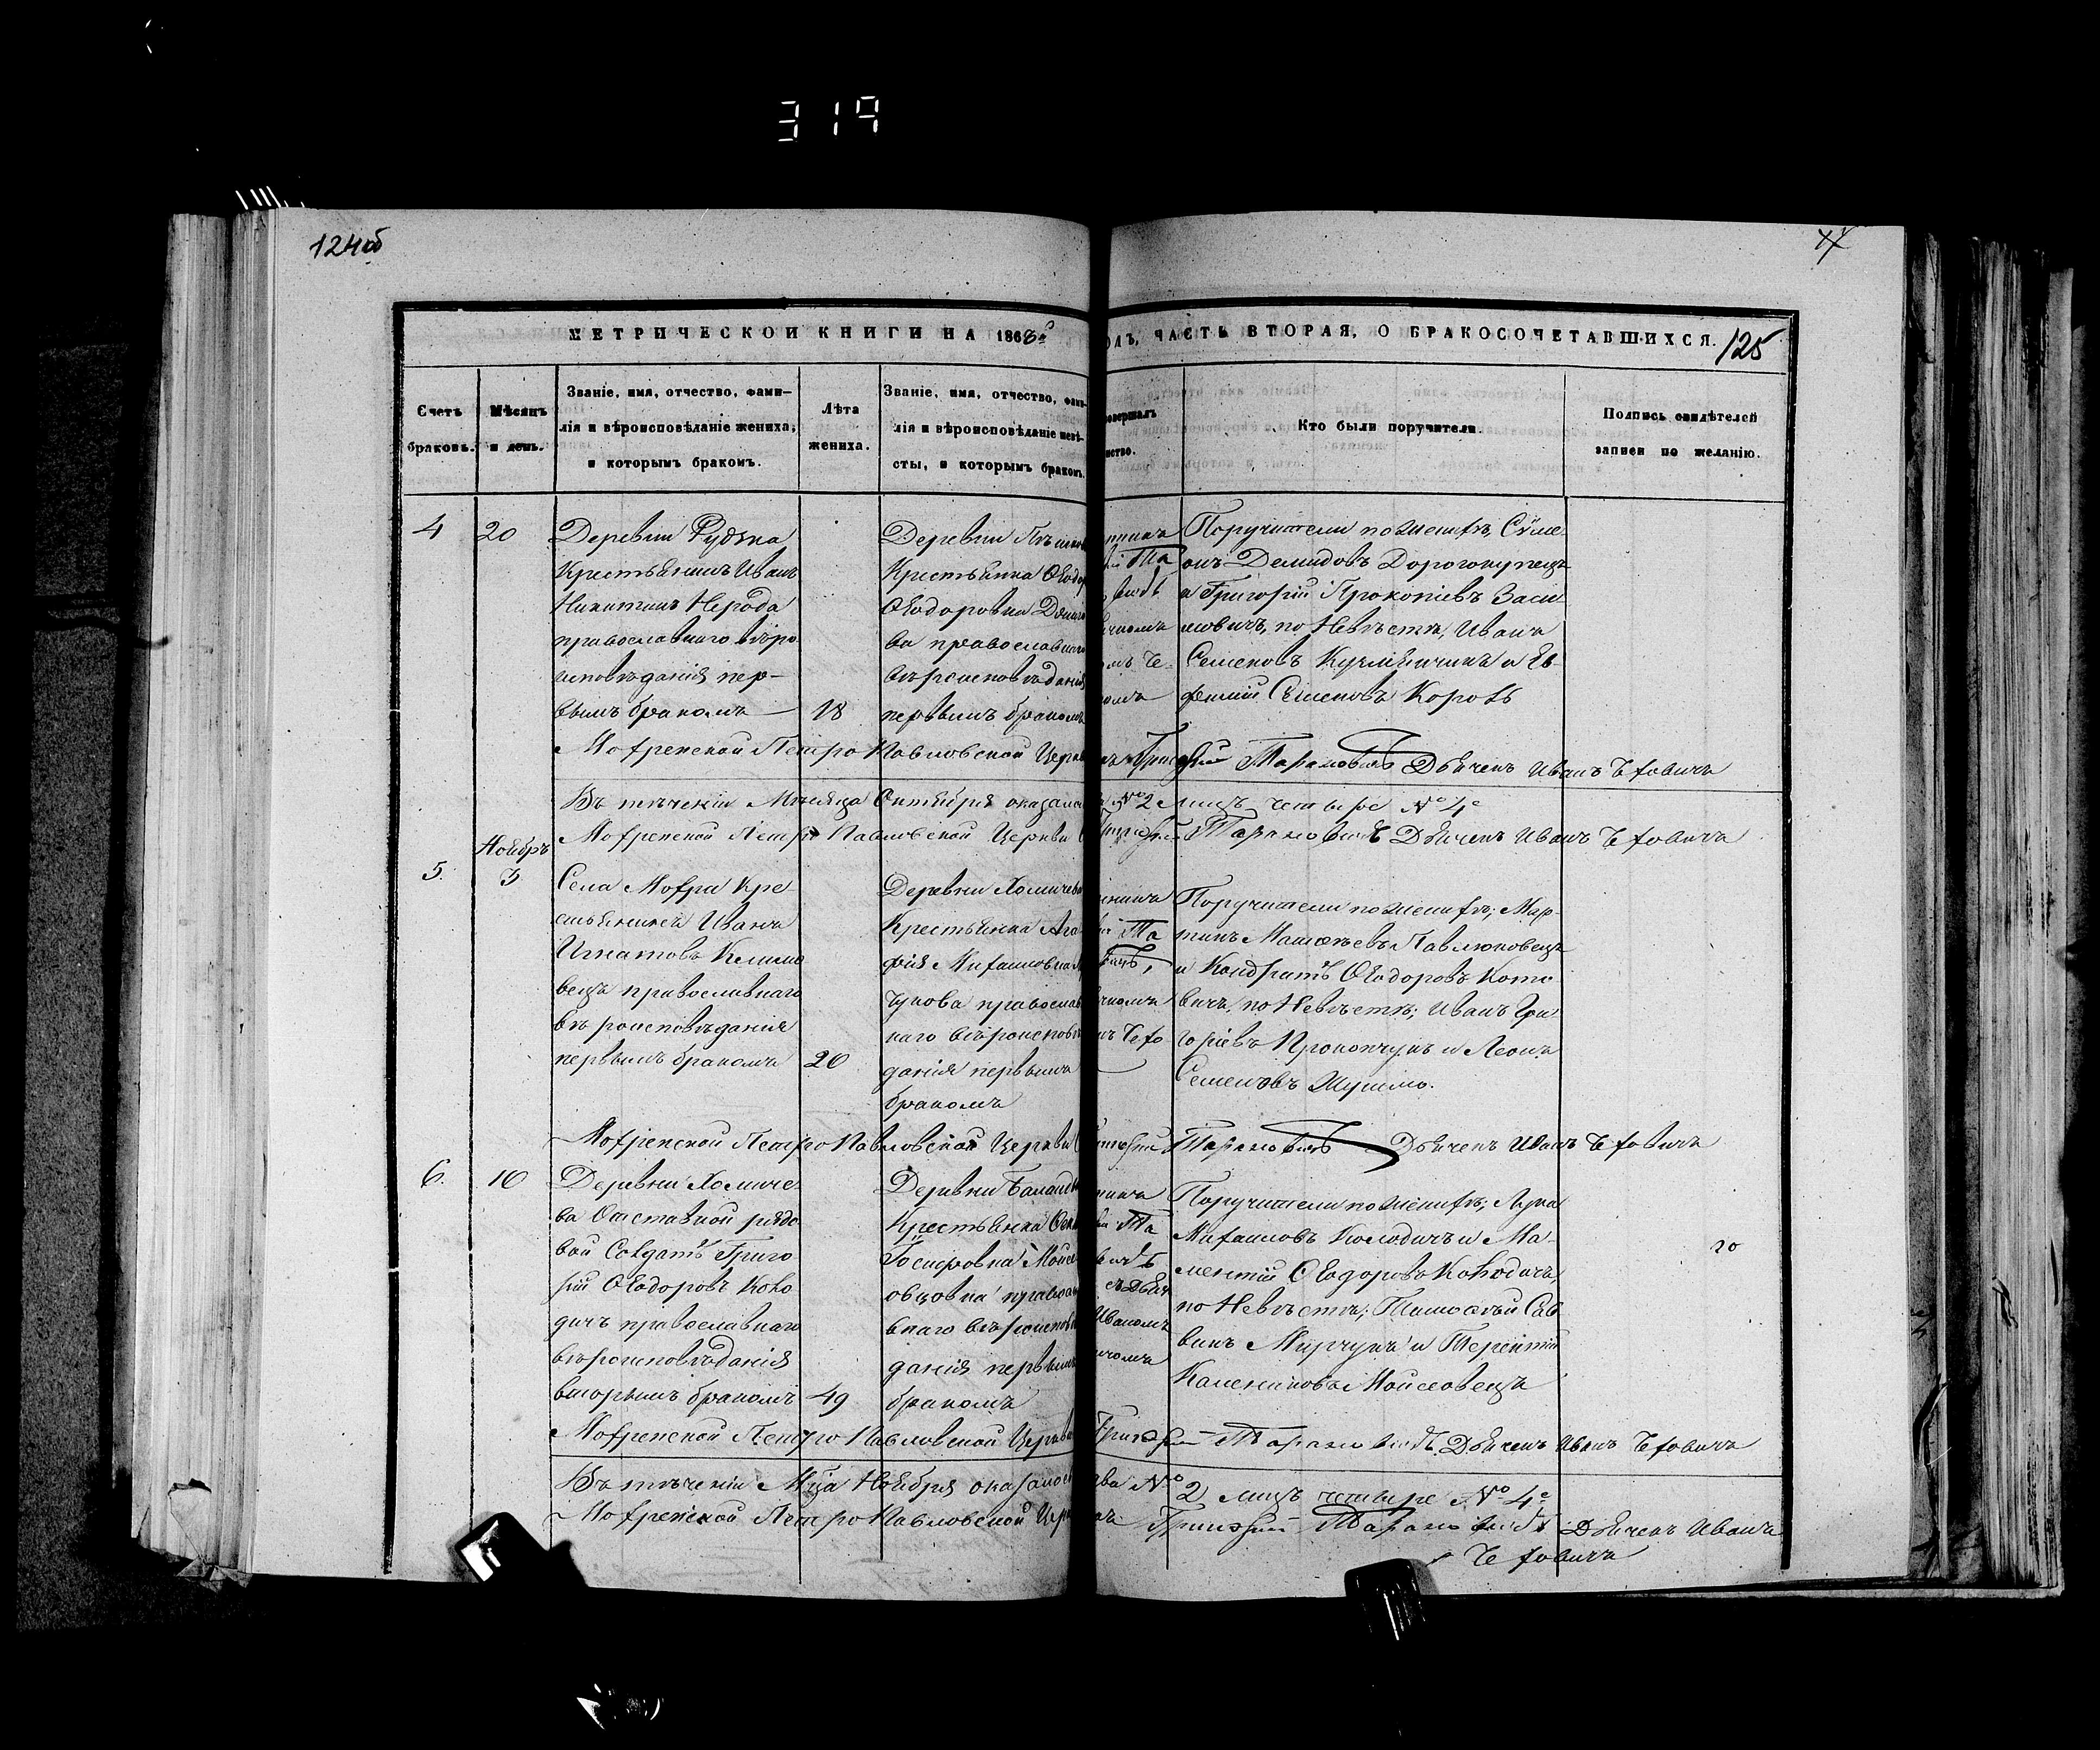 319
124об
125
МЕТРИЧЕСКОЙ КНИГИ НА 1868й
ОДЪ, ЧАСТЬ ВТОРАЯ, О БРАКОСОЧЕТАВШИХСЯ.
Счетъ
браковъ.
Мѣсяцъ
и день.
Званіе, имя, отчество, фами-
лія и вѣроисповѣданіе жениха,
и которымъ бракомъ.
Лѣта
жениха.
Званіе, имя, отчество, фами-
лія и вѣроисповѣданіе невѣ-
сты, и которымъ бракомъ.
совершалъ
нство.
Кто были поручители.
Подпись свидѣтелей
записи по желанію.
4
20
Деревни Рудзка
Крестьянинъ Иванъ
Никитинъ Нерода
православнаго вѣро
исповѣданія пер-
вымъ бракомъ
18
Деревни
Крестьянка Ѳеодор
Ѳеодоровна
ва православнаго
вѣроисповѣданія
первымъ бракомъ
Та
Поручители по Женихѣ, Сѵме-
онъ Демидовъ Дорогокупецъ
и Григорій Прокопіевъ Васи
левичъ, по Невѣстѣ, Иванъ
Семеновъ и Ев-
фимій Семеновъ Король
Мохренской Петро Павловской Церкви Григорій Тарановичъ Дьячекъ Иванъ Чеховичъ
Въ теченіи Мѣсяца Октября оказалось № 2 лицъ четыре № 4
Мохренской Петро Павловской Церкви Григорій Тарановичъ Дьячекъ Иванъ Чеховичъ
5.
Ноябрь
3
Села Мохра Кре
стьянинъ Иванъ
Игнатовъ Климо
вецъ православнаго
вѣроисповѣданія
первымъ бракомъ
20
Деревни Хомичева
Крестьянка Ага
фія Михаиловна
чукова православ
наго вѣроисповѣ
данія первымъ
бракомъ
Та
Поручители по Женихѣ; Мар-
тинъ Матѳѣевъ Павлюковецъ
и Кондратъ Ѳеодоровъ Кото
вичъ, по Невѣстѣ; Иванъ Гри
горіевъ Прокопчукъ и Леонъ
Семеновъ
Мохренской Петро Павловской Церкви Григорій Тарановичъ Дьячекъ Иванъ Чеховичъ
6.
10
Деревни Хомиче-
ва Отставной рядо
вой Солдатъ Григо
рій Ѳеодоровъ Коло
дичъ православнаго
вѣроисповѣданія
вторымъ бракомъ
49
Деревни
Крестьянка
Іосифовна Моисе
овцовна православ
внаго вѣроисповѣ
данія первымъ
бракомъ
Та
съ Дьяч
Иваномъ
Поручители по Женихѣ; Лука
Михаиловъ Колодичъ и Ма-
ментій Ѳеодоровъ Колодичъ,
по Невѣстѣ; Тимоѳѣй Сав
винъ и Терентій
Калениковъ Моисеовецъ
Мохренской Петро Павловской Церкви Григорій Тарановичъ Дьячекъ Иванъ Чеховичъ
Въ теченіи Мца Ноября оказалось два № 2 лицъ четыре № 4
Мохренской Петро Павловской Церкви Григорій Тарановичъ Дьячекъ Иванъ
Чеховичъ